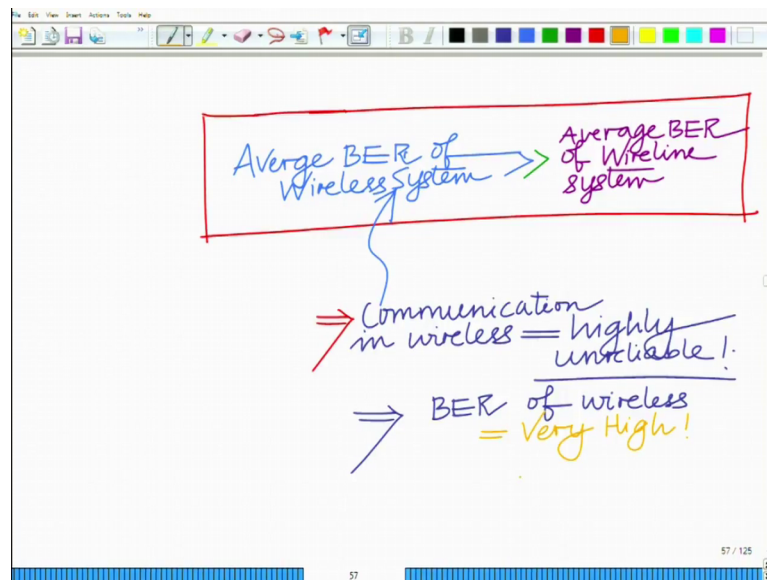 File Edit View Insert Actions Tools Help
Averge BER of
Wireless System
>>
Average BER
of Wireline
system
⇒ Communication
in wireless = highly
unreliable!
⇒ BER of wireless
= Very High!
57 / 125
57